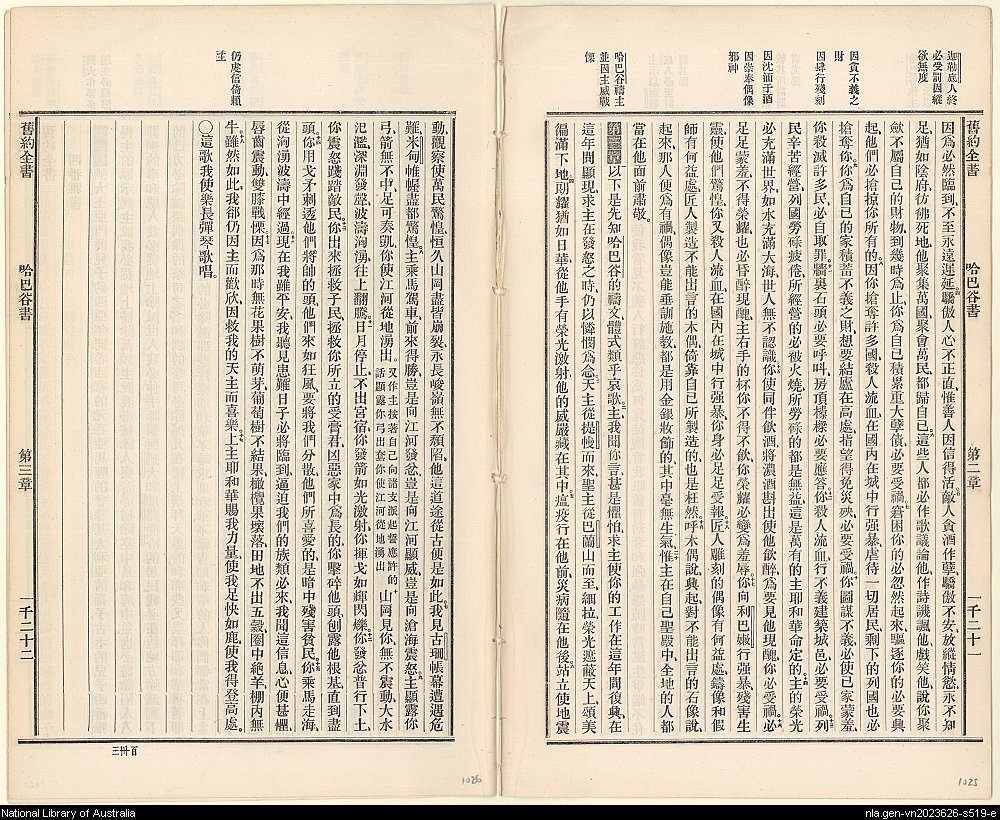 舊約全書
哈巴谷書
第二章
一千二十一
迦勒底人終
必受罰因縱
欲無度
因貪不義之
財
因肆行殘刻
因沈湎于酒
因崇奉偶像
邪神
哈巴谷禱主
並因主威戰
慄
因為必然臨到、不至永遠遲延、驕傲人心不正直、惟善人因信得活、敵人貪酒作孽、驕傲不安、放縱情慾、永不知
足、猶如陰府、彷彿死地、他聚集萬國、聚會萬民、都歸自己、這些人都必作歌議論他、作詩譏諷他、戲笑他、說、你聚
斂不屬自己的財物、到幾時為止、你為自己積累重大孽債、必要受禍、窘困你的必忽然起來、驅逐你的必要興
起、他們必搶掠你所有的、因你搶奪許多國、殺人流血、在國內在城中行强暴、虐待一切居民、剩下的列國也必
搶奪你、你為自己的家積蓄不義之財、想要結廬在高處、指望得免災殃、必要受禍、你圖謀不義、必使已家蒙羞、
你殺滅許多民、必自取罪、牆裏石頭必要呼叫、房頂椽樑必要應答、你殺人流血、行不義建築城邑、必要受禍、列
民辛苦經營、列國勞碌疲倦、所經營的必被火燒、所勞碌的都是無益、這是萬有的主耶和華命定的、主的榮光
必充滿世界、如水充滿大海、世人無不認識、你使同伴飲酒、將濃酒斟出、使他飲醉、為要見他現醜、你必受禍、必
足足蒙羞、不得榮耀、也必昏醉現醜、主右手的杯、你不得不飲、你榮耀必變為羞辱、你向利巴嫩行强暴、殘害生
靈、使他們驚惶、你又殺人流血、在國內在城中行强暴、你身必足足受報、匠人雕刻的偶像有何益處、鑄像和假
師有何益處、匠人製造不能出言的木偶、倚靠自已所製造的、也是枉然、呼木偶說、興起、對不能出言的石像說、
起來、那人便為有禍、偶像豈能垂訓施敎、都是用金銀妝飾的、其中毫無生氣、惟主在自己聖殿中、全地的人都
當在他面前肅敬。
第三章以下是先知哈巴谷的禱文、體式類乎哀歌、主、我聞你言、甚是懼怕、求主使你的工作在這年間復興、在
這年間顯現、求主在發怒之時、仍以憐憫為念、天主從提幔而來、聖主從巴蘭山而至、細拉、榮光遮蔽天上、頌美
徧滿下地、朗耀猶如日華、從他手有榮光激射、他的威嚴藏在其中、瘟疫行在他前、災病隨在他後、站立使地震
舊約全書
哈巴谷書
第三章
一千二十二
仍虔信倚賴
主
動、觀察使萬民驚惶、恒久山岡盡皆崩裂、永長峻嶺無不頹陷、他這道途從古便是如此、我見古珊帳幕遭遇危
難、米甸帷幄盡都驚惶、主乘馬駕車、前來得勝、豈是向江河發忿、豈是向江河顯威、豈是向滄海震怒、主顯露你
弓、箭無不中、足可奏凱、你使江河從地湧出、又作主按著自己向諸支派起誓應許的話顯露你弓出套你使江河從地湧出山岡見你、無不震動、大水
氾濫、深淵發聲、波濤洶湧、往上翻騰、日月停止、不出宮宿、你發箭如光激射、你揮戈如輝閃爍、你發忿普行下土、
你震怒踐踏敵民、你出來拯救子民、拯救你所立的受膏君、凶惡家中為長的、你擊碎他頭、刨露他根基、直到盡
頭、你用戈矛刺透他們將帥的頭、他們來如狂風、要將我們分散、他們所喜愛的、是暗中殘害貧民、你乘馬走海、
從洶湧波濤中經過、現在我雖平安、我聽見患難日子必將臨到、逼迫我們的族類必來、我聞這信息、心便甚懼、
唇齒震動、雙膝戰慄、因為那時無花果樹不萌芽、葡萄樹不結果、橄欖果壞落、田地不出五穀、圈中絕羊、棚內無
牛、雖然如此、我卻仍因主而歡欣、因救我的天主而喜樂、上主耶和華賜我力量、使我足快如鹿、使我得登高處。
〇這歌我使樂長彈琴歌唱。
三百卅
1026
1025
National Library of Australia
nla.gen-vn2023626-s519-e